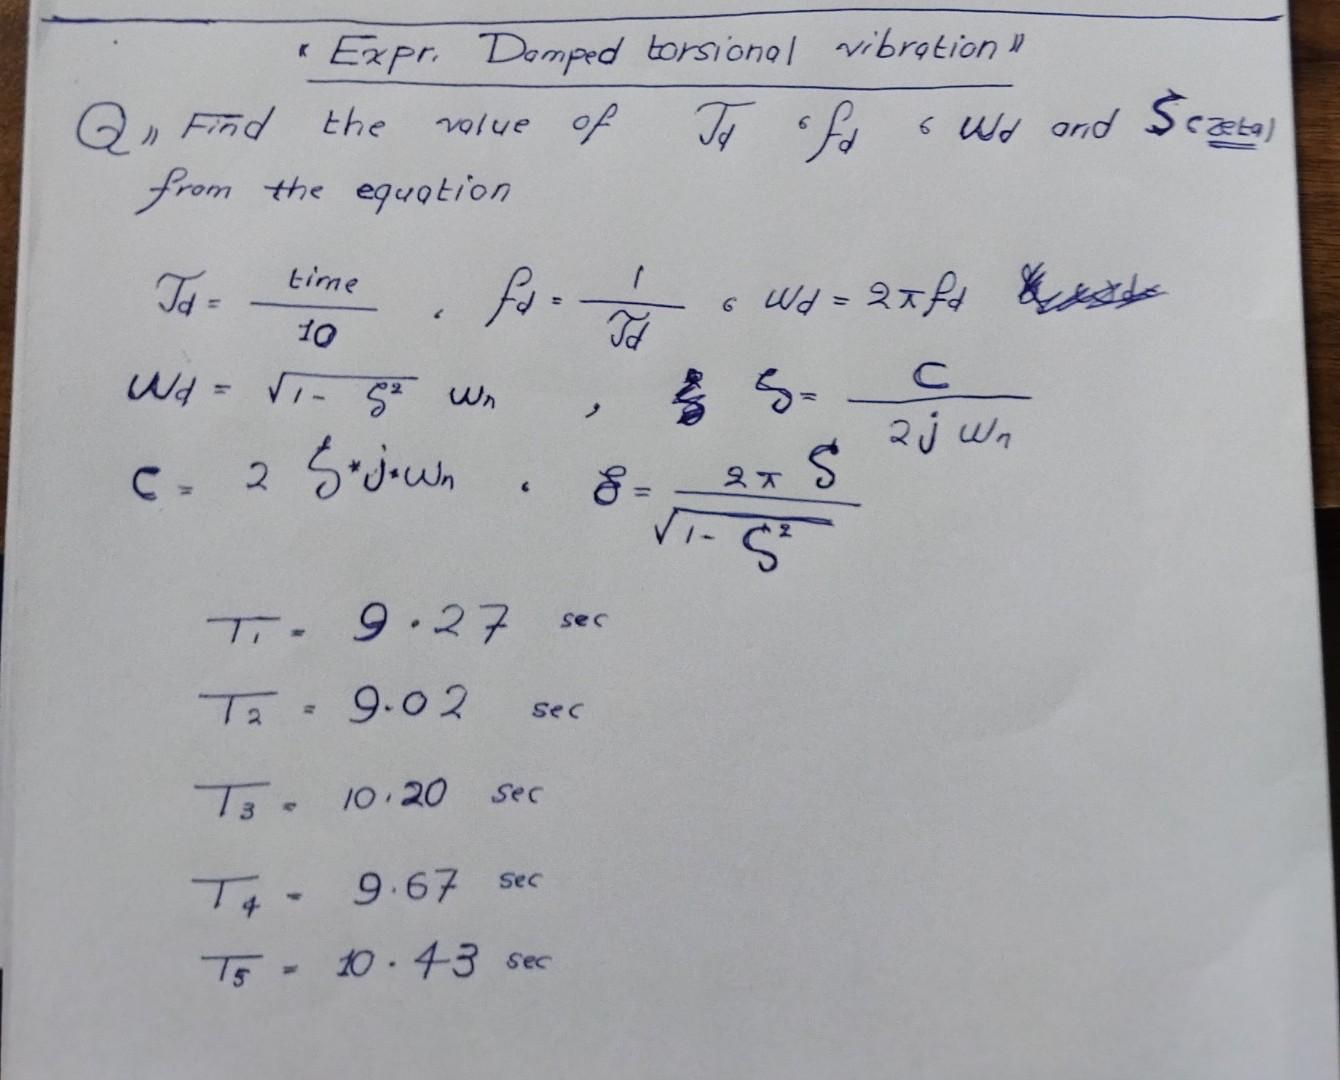 "Expr. Damped torsional vibration"
Q,, Find the value of Td ، fd ، ωd and ζ (zeta)
from the equation
Td = time / 10 ، fd = 1 / Td ، ωd = 2π fd
ωd = √1 - ζ² ωn , ζ = C / 2j ωn
C = 2 ζ * j * ωn ، δ = 2π ζ / √1 - ζ²
T1 = 9.27 sec
T2 = 9.02 sec
T3 = 10.20 sec
T4 = 9.67 sec
T5 = 10.43 sec